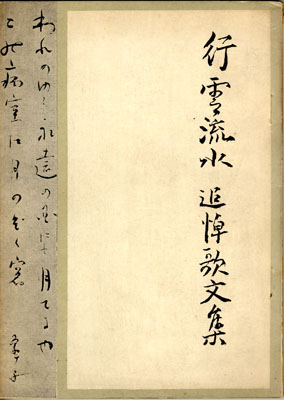 行雲流水 追悼歌文集
われのゆく永遠の
月てるや
この病室に月の
窓